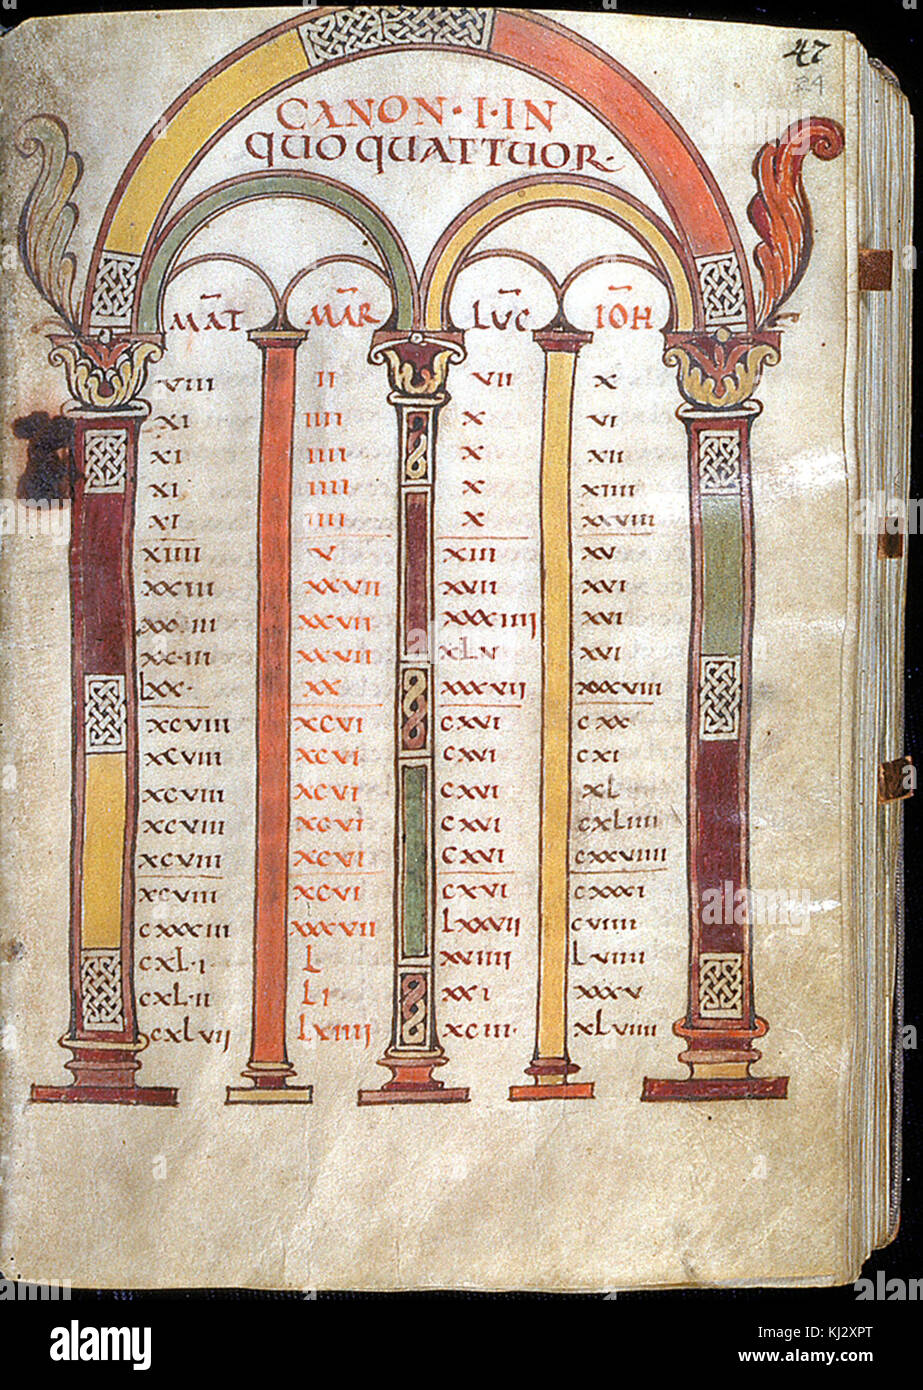 47
24
CANON · I · IN
QUO QUATTUOR ·
MAT MAR LUC IOH
VIII II VII X
XI IIII X VI
XI IIII X XII
XI IIII X XIIII
XI IIII X XXVIII
XIIII V XIII XV
XXIII XXVII XVII XVI
XXIII XXVII XXXIIII XVI
XCIII XXVII XLV XVI
LXX · XX XXXVII XXXVIII
XCVIII XCVI CXVI CXX
XCVIII XCVI CXVI CXI
XCVIII XCVI CXVI XL
XCVIII XCVI CXVI CXLIIII
XCVIII XCVI CXVI CXXVIIII
XCVIII XCVI CXVI CXXXI
CXXXIII XXXVII LXXVII CVIIII
CXL · I L XVIIII LVIIII
CXL · II LI XXI XXXV
CXLVII LXIIII XCIII · XLVIIII
alamy
KJ2XPT
www.alamy.com